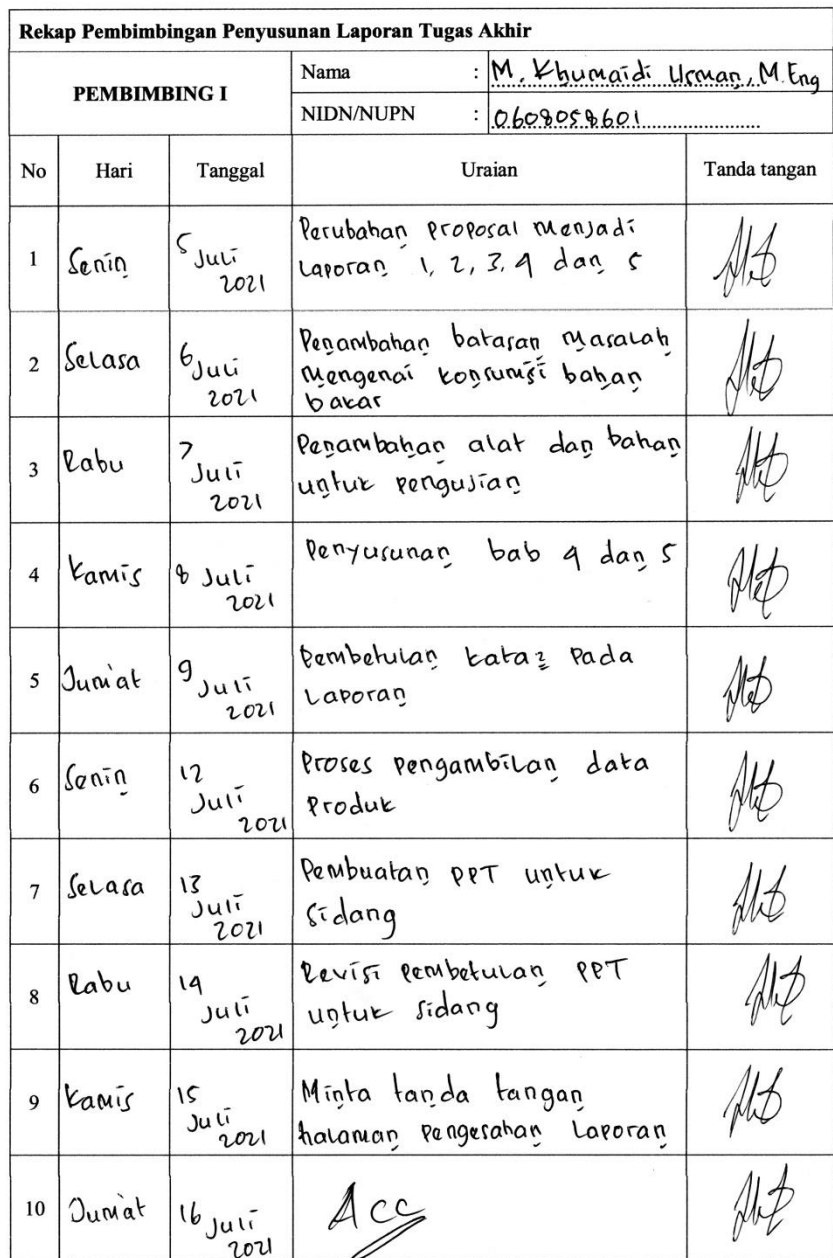 Rekap Pembimbingan Penyusunan Laporan Tugas Akhir
PEMBIMBING I
Nama : M. Khumaidi Usman, M.Eng
NIDN/NUPN : 0608058601
No Hari Tanggal Uraian Tanda tangan
1 Senin 5 Juli 2021 Perubahan proposal menjadi
laporan 1, 2, 3, 4 dan 5
2 Selasa 6 Juli 2021 Penambahan batasan masalah
mengenai konsumsi bahan
bakar
3 Rabu 7 Juli 2021 Penambahan alat dan bahan
untuk pengujian
4 Kamis 8 Juli 2021 Penyusunan bab 4 dan 5
5 Jum'at 9 Juli 2021 Pembetulan kata2 pada
Laporan
6 Senin 12 Juli 2021 Proses pengambilan data
produk
7 Selasa 13 Juli 2021 Pembuatan PPT untuk
sidang
8 Rabu 14 Juli 2021 Revisi pembetulan PPT
untuk sidang
9 Kamis 15 Juli 2021 Minta tanda tangan
halaman pengesahan Laporan
10 Jum'at 16 Juli 2021 Acc